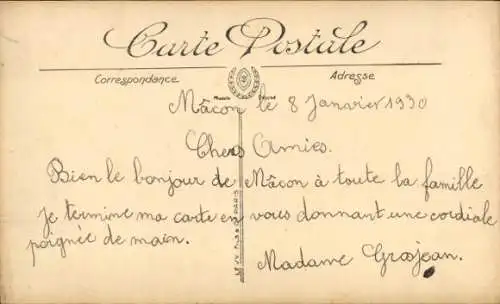 Carte Postale
Correspondance
Adresse
Mâcon le 8 Janvier 1930
Chers Amies.
Bien le bonjour de Mâcon à toute la famille
je termine ma carte en vous donnant une cordiale
poignée de main.
Madame Grosjean.